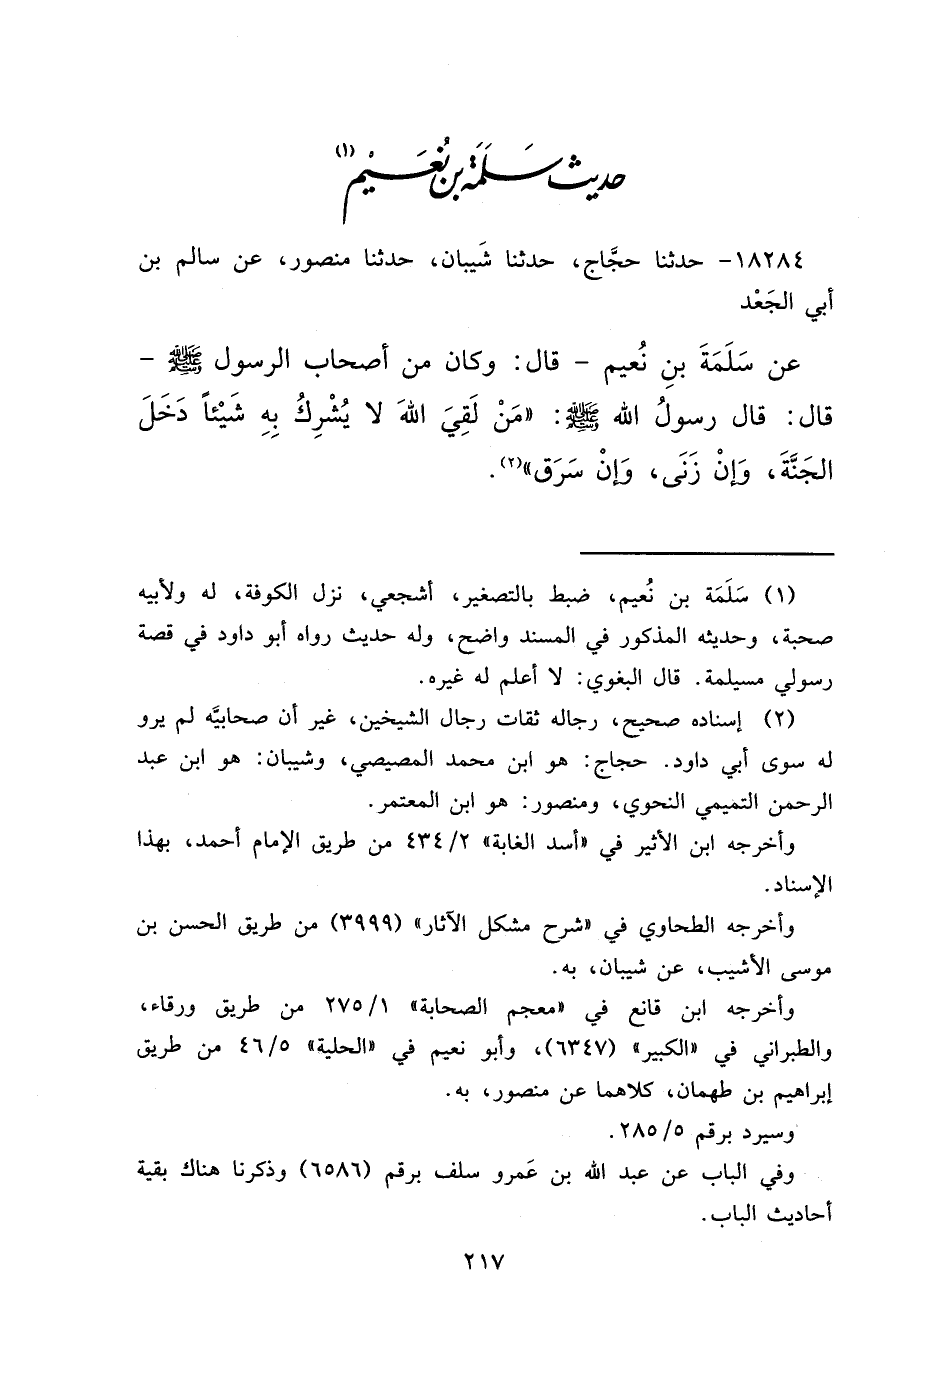 حديث سَلَمَة بن نُعَيْم(١)
١٨٢٨٤- حدثنا حجَّاج، حدثنا شَيبان، حدثنا منصور، عن سالم بن
أبي الجَعْد
عن سَلَمَةَ بنِ نُعيم - قال: وكان من أصحاب الرسول ﷺ -
قال: قال رسولُ الله ﷺ: «مَنْ لَقِيَ اللهَ لا يُشْرِكُ بِهِ شَيْئاً دَخَلَ
الجَنَّةَ، وَإِنْ زَنَى، وَإِنْ سَرَق»(٢).
(١) سَلَمَة بن نُعيم، ضبط بالتصغير، أشجعي، نزل الكوفة، له ولأبيه
صحبة، وحديثه المذكور في المسند واضح، وله حديث رواه أبو داود في قصة
رسولي مسيلمة. قال البغوي: لا أعلم له غيره.
(٢) إسناده صحيح، رجاله ثقات رجال الشيخين، غير أن صحابيَّه لم يرو
له سوى أبي داود. حجاج: هو ابن محمد المصيصي، وشيبان: هو ابن عبد
الرحمن التميمي النحوي، ومنصور: هو ابن المعتمر.
وأخرجه ابن الأثير في «أسد الغابة» ٤٣٤/٢ من طريق الإمام أحمد، بهذا
الإسناد.
وأخرجه الطحاوي في «شرح مشكل الآثار» (٣٩٩٩) من طريق الحسن بن
موسى الأشيب، عن شيبان، به.
وأخرجه ابن قانع في «معجم الصحابة» ٢٧٥/١ من طريق ورقاء،
والطبراني في «الكبير» (٦٣٤٧)، وأبو نعيم في «الحلية» ٤٦/٥ من طريق
إبراهيم بن طهمان، كلاهما عن منصور، به.
وسيرد برقم ٢٨٥/٥.
وفي الباب عن عبد الله بن عَمرو سلف برقم (٦٥٨٦) وذكرنا هناك بقية
أحاديث الباب.
٢١٧